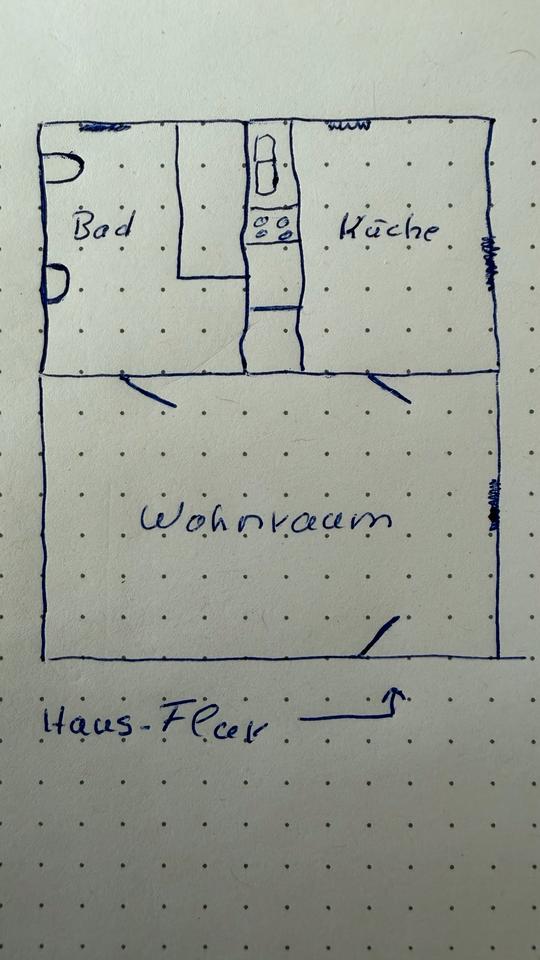 Bad
Küche
Wohnraum
Haus-Flur